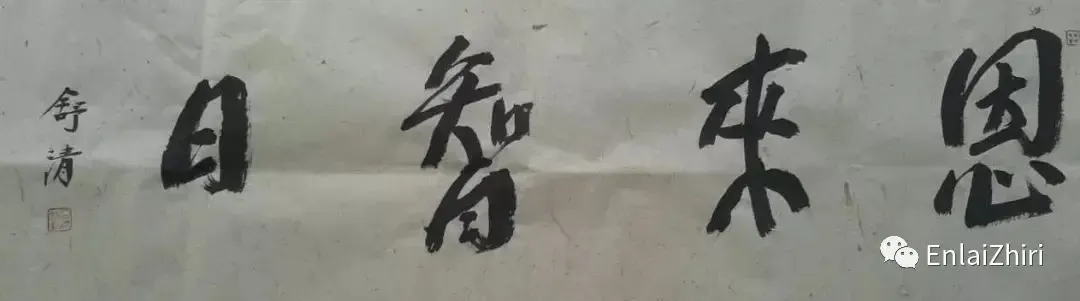 恩來智日
舒清
EnlaiZhiri